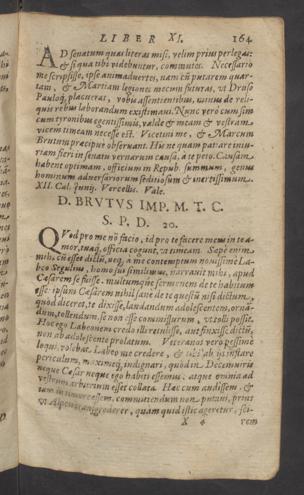 LIBER XI. 164
AD senatum quas literas misi, velim prius perlegas:
& si qua tibi videbuntur, commutes. Necessario
me scripsisse, ipse animadvertes, nam cùm putarem quar-
tam, & Martiam legiones mecum futuras, vt Druso
Pauloq́, placuerat, vobis assentientibus, minus de reli-
quis rebus laborandum existimavi. Nunc vero cum sim
cum tyronibus egentissimis, valde & meam & vestram
vicem timeam necesse est. Vicetini me, & Marcum
Brutum præcipue observant. His ne quam patiare iniu-
riam fieri in senatu vernarum causa, à te peto. Causam
habent optimam, officium in Remp. summum, genus
hominum adversariorum seditiosum & inertissimum.
XII. Cal. Iunij. Vercellis. Vale.
D. BRVTVS IMP. M. T. C.
S. P. D. 20.
QVod pro me nō facio, id pro te facere meus in te a-
mor, tuaq́, officia cogunt, vt timeam. Sæpe enim
mihi cū esset dictū, neq́, a me contemptum novissime La-
beo Segulius, homo sui simillimus, narravit mihi, apud
Cæsarem se fuisse, multumque sermonem de te habitum
esse: ipsum Cæsarem nihil sane de te questū nisi dictum,
quòd diceret, te dixisse, laudandum adolescentem, ornā-
dum, tollendum, se non esse commissurum, vt tolli possit.
Hoc ego Labeonem credo illi retulisse, aut finxisse dictū,
non ab adolescente prolatum. Veteranos vero pessime
loqui, volebat Labeo me credere, & tibi ab iis instare
periculum, maximeq́, indignari, quòd in Decemviris
neque Cæsar neque ego habiti essemus: atque omnia ad
vestrum arbitrium esset collata. Hæc cum audissem, &
iam in itinere essem, committendum non putavi, prius
vt Alpes transgrederer, quam quid istic ageretur, sci-
X 4 rem